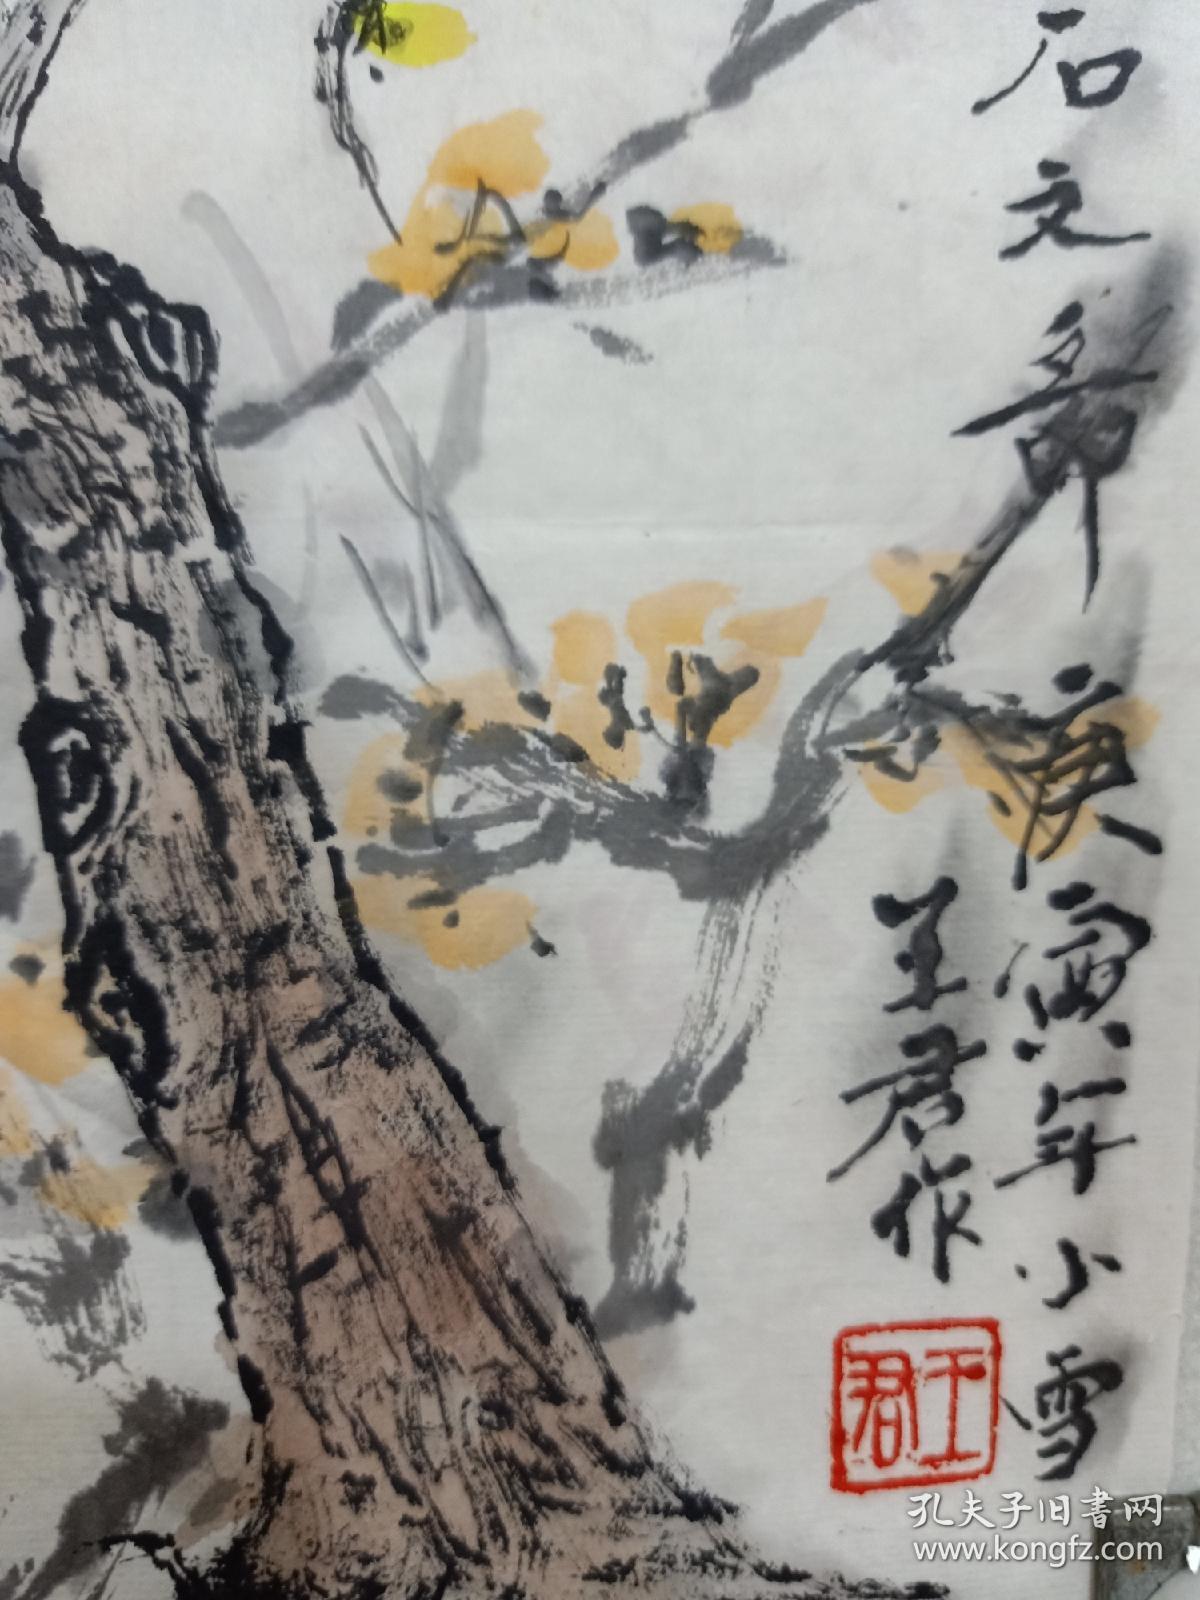 石文节庚寅年小雪
王君作
王君
孔夫子旧書网
www.kongfz.com